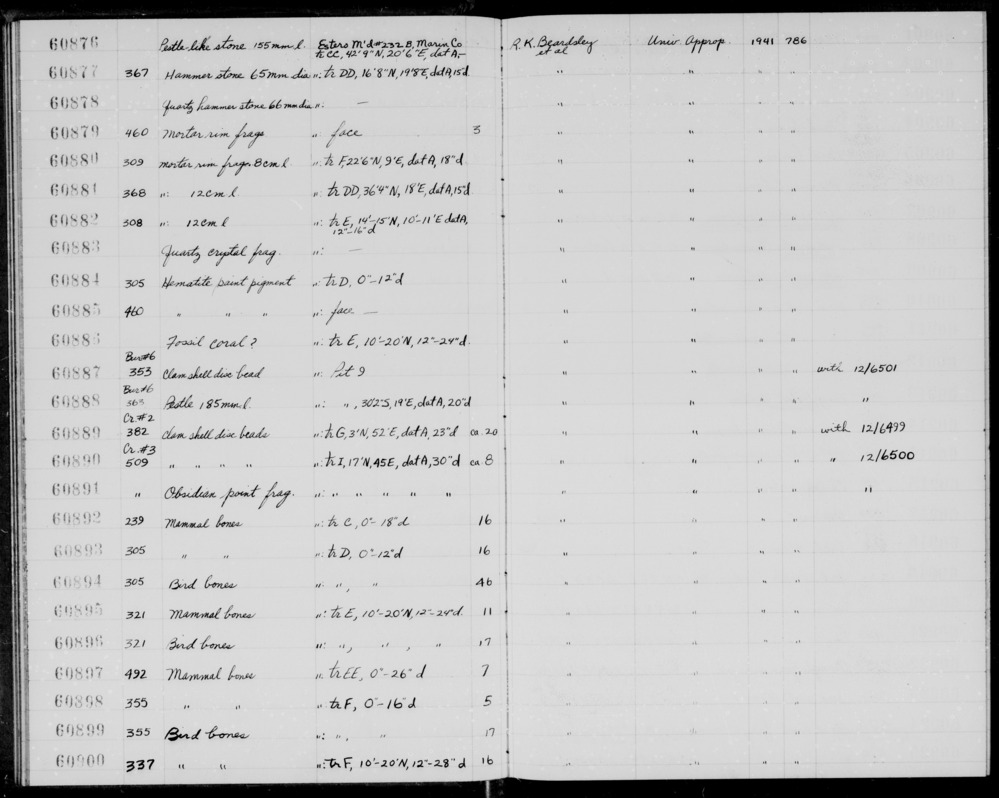 60876 Pestle-like stone 155mm l. Estero M'd #232 B, Marin Co R.K. Beardsley Univ. Approp. 1941 786
tr CC, 42'9"N, 20'6"E, dat A, – et al
60877 367 Hammer stone 65mm dia ": tr DD, 16'8"N, 19'8"E, dat A, 15"d " " " "
60878 Quartz hammer stone 66 mm dia ": — " " " "
60879 460 Mortar rim frags ": face 3 " " " "
60880 309 mortar rim frags 8cm l ": tr F, 22'6"N, 9'E, dat A, 18"d " " " "
60881 368 ": 12cm l ": tr DD, 36'4"N, 18'E, dat A, 15"d " " " "
60882 308 ": 12cm l ": tr E, 14'-15'N, 10'-11'E dat A, " " " "
12"-16"d
60883 Quartz crystal frag. ": — " " " "
60884 305 Hematite paint pigment ": tr D, 0"-12"d " " " "
60885 460 " " " ": face — " " " "
60886 Fossil coral? ": tr E, 10'-20'N, 12"-24"d. " " " "
Bur #6
60887 353 Clam shell disc bead ": Pit 9 " " " " with 12/6501
Bur #6
60888 363 Pestle 185mm l. ": ", 30'2"S, 19'E, dat A, 20"d " " " " "
Cr. #2
60889 382 Clam shell disc beads ": tr G, 3'N, 52'E, dat A, 23"d ca. 20 " " " " with 12/6499
Cr. #3
60890 509 " " " " ": tr I, 17'N, 45E, dat A, 30"d ca 8 " " " " " 12/6500
60891 " Obsidian point frag. ": " " " " " " " " " "
60892 239 Mammal bones ": tr C, 0"-18"d 16 " " " "
60893 305 " " ": tr D, 0"-12"d 16 " " " "
60894 305 Bird bones ": ", " 46 " " " "
60895 321 Mammal bones ": tr E, 10'-20'N, 12"-24"d. 11 " " " "
60896 321 Bird bones ": ", ", " 17 " " " "
60897 492 Mammal bones ": tr EE, 0"-26"d 7 " " " "
60898 355 " " ": tr F, 0"-16"d 5 " " " "
60899 355 Bird bones ": ", " 17 " " " "
60900 337 " " ": tr F, 10'-20'N, 12"-28"d 16 " " " "